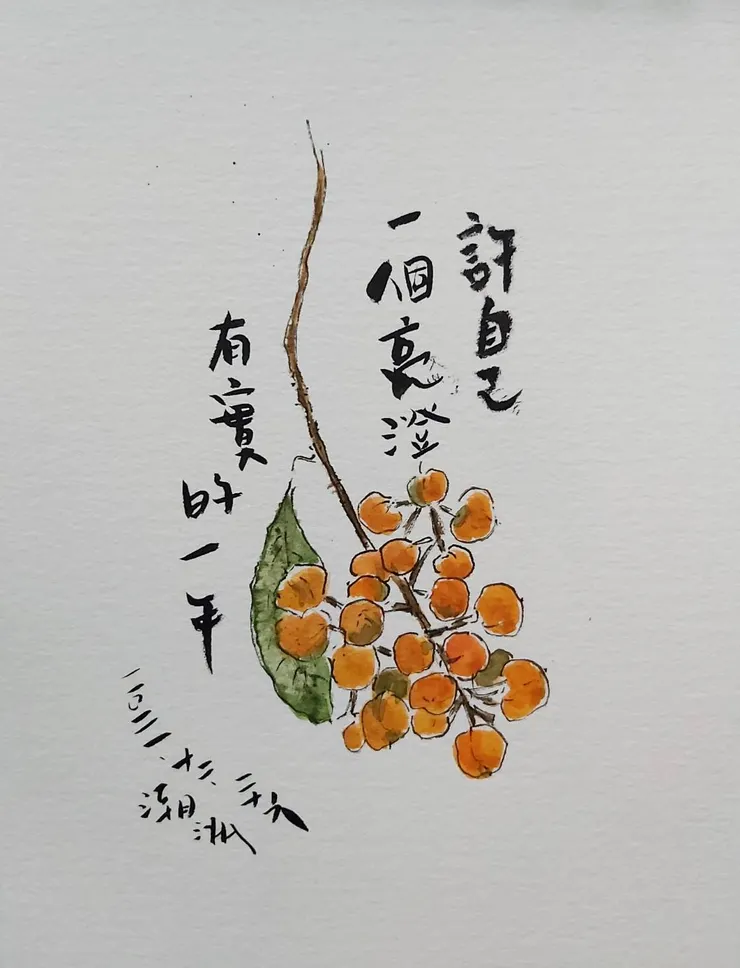 許自己
一個亮澄
有實的一年
二〇二一、十二、二十六
潮洲